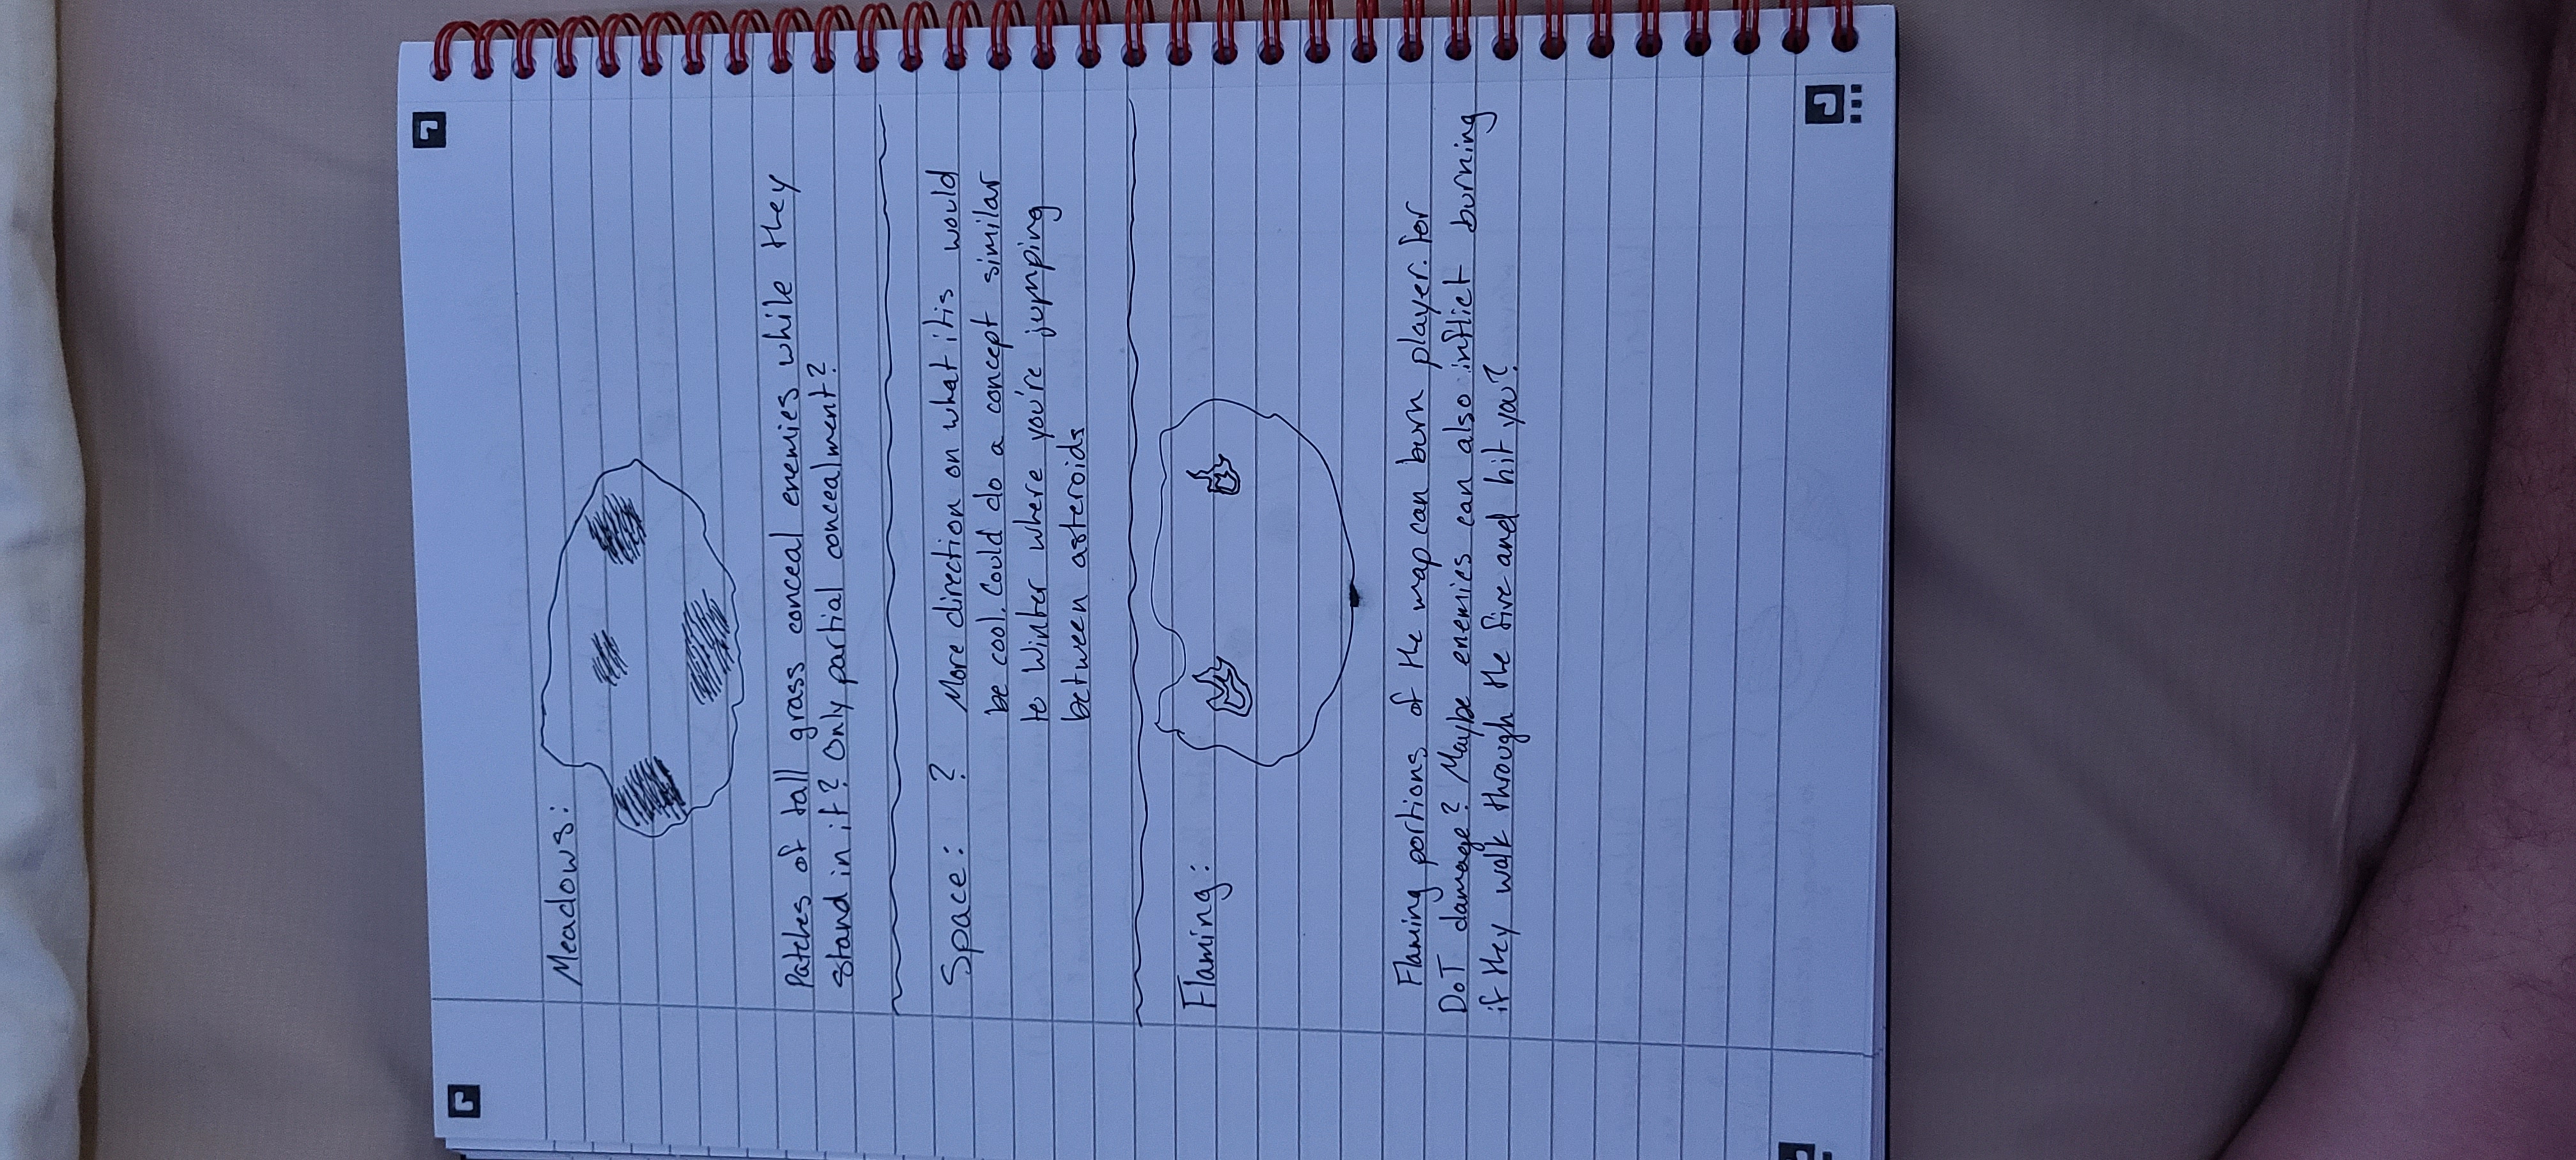 Meadows:
Patches of tall grass conceal enemies while they
stand in it? Only partial concealment?
Space: ? More direction on what it is would
be cool. Could do a concept similar
to Winter where you're jumping
between asteroids
Flaming:
Flaming portions of the map can burn player. for
DoT damage? Maybe enemies can also inflict burning
if they walk through the fire and hit you?